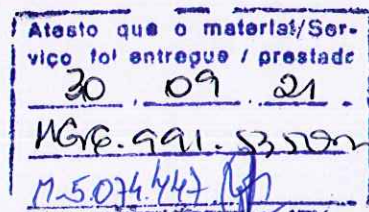 Atesto que o material/Ser-
viço foi entregue / prestado
30 09 21
M-5.074.447